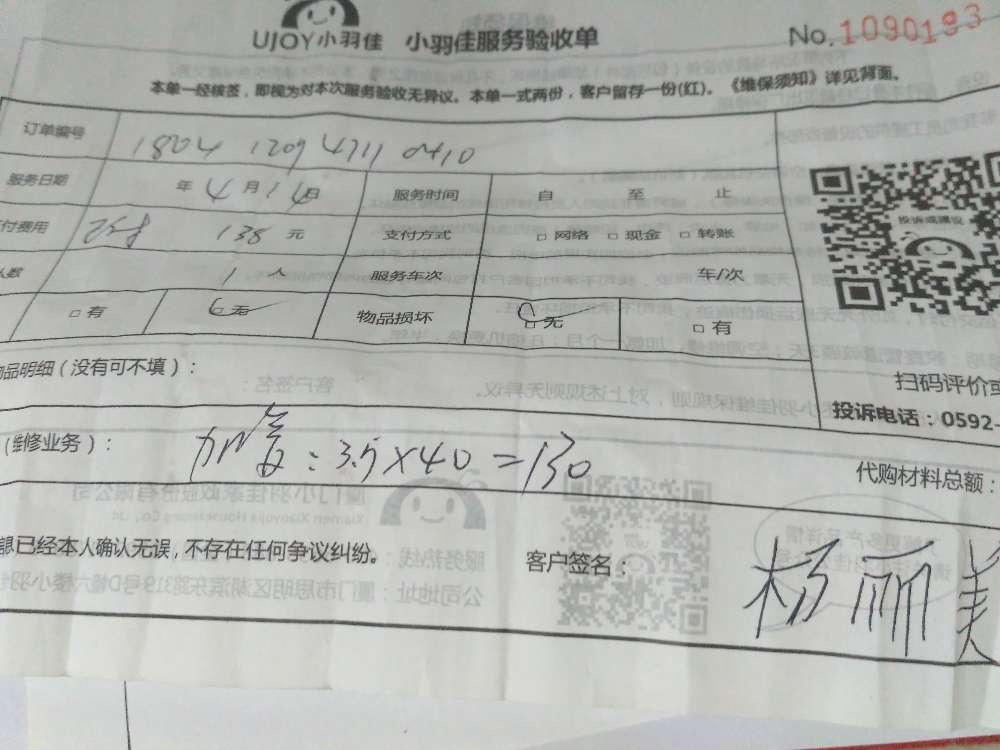 UJOY小羽佳 小羽佳服务验收单 No.1090193
本单一经核签，即视为对本次服务验收无异议。本单一式两份，客户留存一份(红)。《维保须知》详见背面。
订单编号 1804 1209 4711 0410
服务日期 年4月14日 服务时间 自 至 止
付费用 138元 支付方式 □网络 □现金 □转账
人数 1人 服务车次 车/次
□有 无 物品损坏 □无 □有
投诉或建议
扫码评价或
品明细（没有可不填）：
投诉电话：0592-
（维修业务）： 加氟：3.5×40=130
代购材料总额：
息已经本人确认无误，不存在任何争议纠纷。 客户签名： 杨丽美